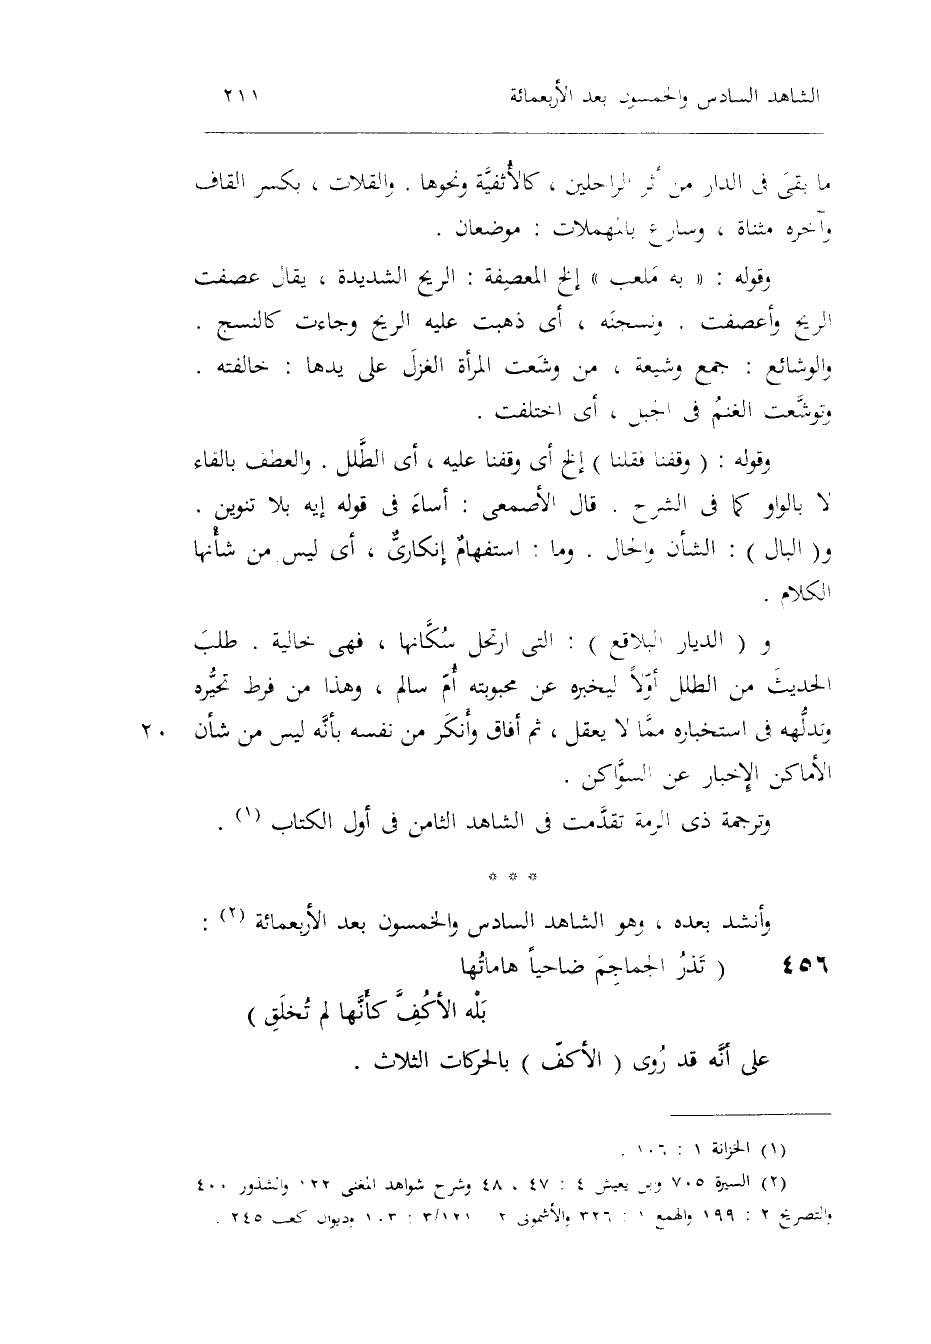 الشاهد السادس والخمسون بعد الأربعمائة ٢١١
ما بقىَ فى الدار من أثر الراحلين ، كالأُثفيَّة ونحوها . والقلات ، بكسر القاف
وآخره مثناة ، وسارع بالمهملات : موضعان .
وقوله : « به مَلعب » إلخ المعصِفة : الريح الشديدة ، يقال عصفت
الريح وأعصفت . ونسجتَه ، أى ذهبت عليه الريح وجاءت كالنسج .
والوشائع : جمع وشيعة ، من وشَعت المرأة الغزلَ على يدها : خالفته .
وتوشَّعت الغنمُ فى الجبل ، أى اختلفت .
وقوله : ( وقفنا فقلنا ) إلخ أى وقفنا عليه ، أى الطَّلل . والعطف بالفاء
لا بالواو كما فى الشرح . قال الأصمعى : أساءَ فى قوله إيه بلا تنوين .
و( البال ) : الشأن والحال . وما : استفهامٌ إنكارىٌّ ، أى ليس من شأْنها
الكلام .
و ( الديار البلاقع ) : التى ارتحل سُكَّانها ، فهى خالية . طلبَ
الحديثَ من الطلل أوّلاً ليخبره عن محبوبته أُمّ سالم ، وهذا من فرط تحيُّره
وتدلُّهه فى استخباره ممَّا لا يعقل ، ثم أفاق وأَنكَر من نفسه بأنَّه ليس من شأن ٢٠
الأماكن الإِخبار عن السوَّاكن .
وترجمة ذى الرمة تقدَّمت فى الشاهد الثامن فى أول الكتاب (١) .
* * *
وأنشد بعده ، وهو الشاهد السادس والخمسون بعد الأربعمائة (٢) :
٤٥٦ ( تَذرُ الجماجِمَ ضاحياً هاماتُها
بَلْه الأكُفِّ كأَنَّها لم تُخلَقِ )
على أنَّه قد رُوى ( الأكفّ ) بالحركات الثلاث .
(١) الخزانة ١ : ١٠٦ .
(٢) السيرة ٧٠٥ وابن يعيش ٤ : ٤٧ ، ٤٨ وشرح شواهد المغنى ١٢٢ والشذور ٤٠٠
والتصريح ٢ : ١٩٩ والهمع ١ : ٣٢٦ والأشمونى ٢ ١٢١/ ٣ : ١٠٣ وديوان كعب ٢٤٥ .